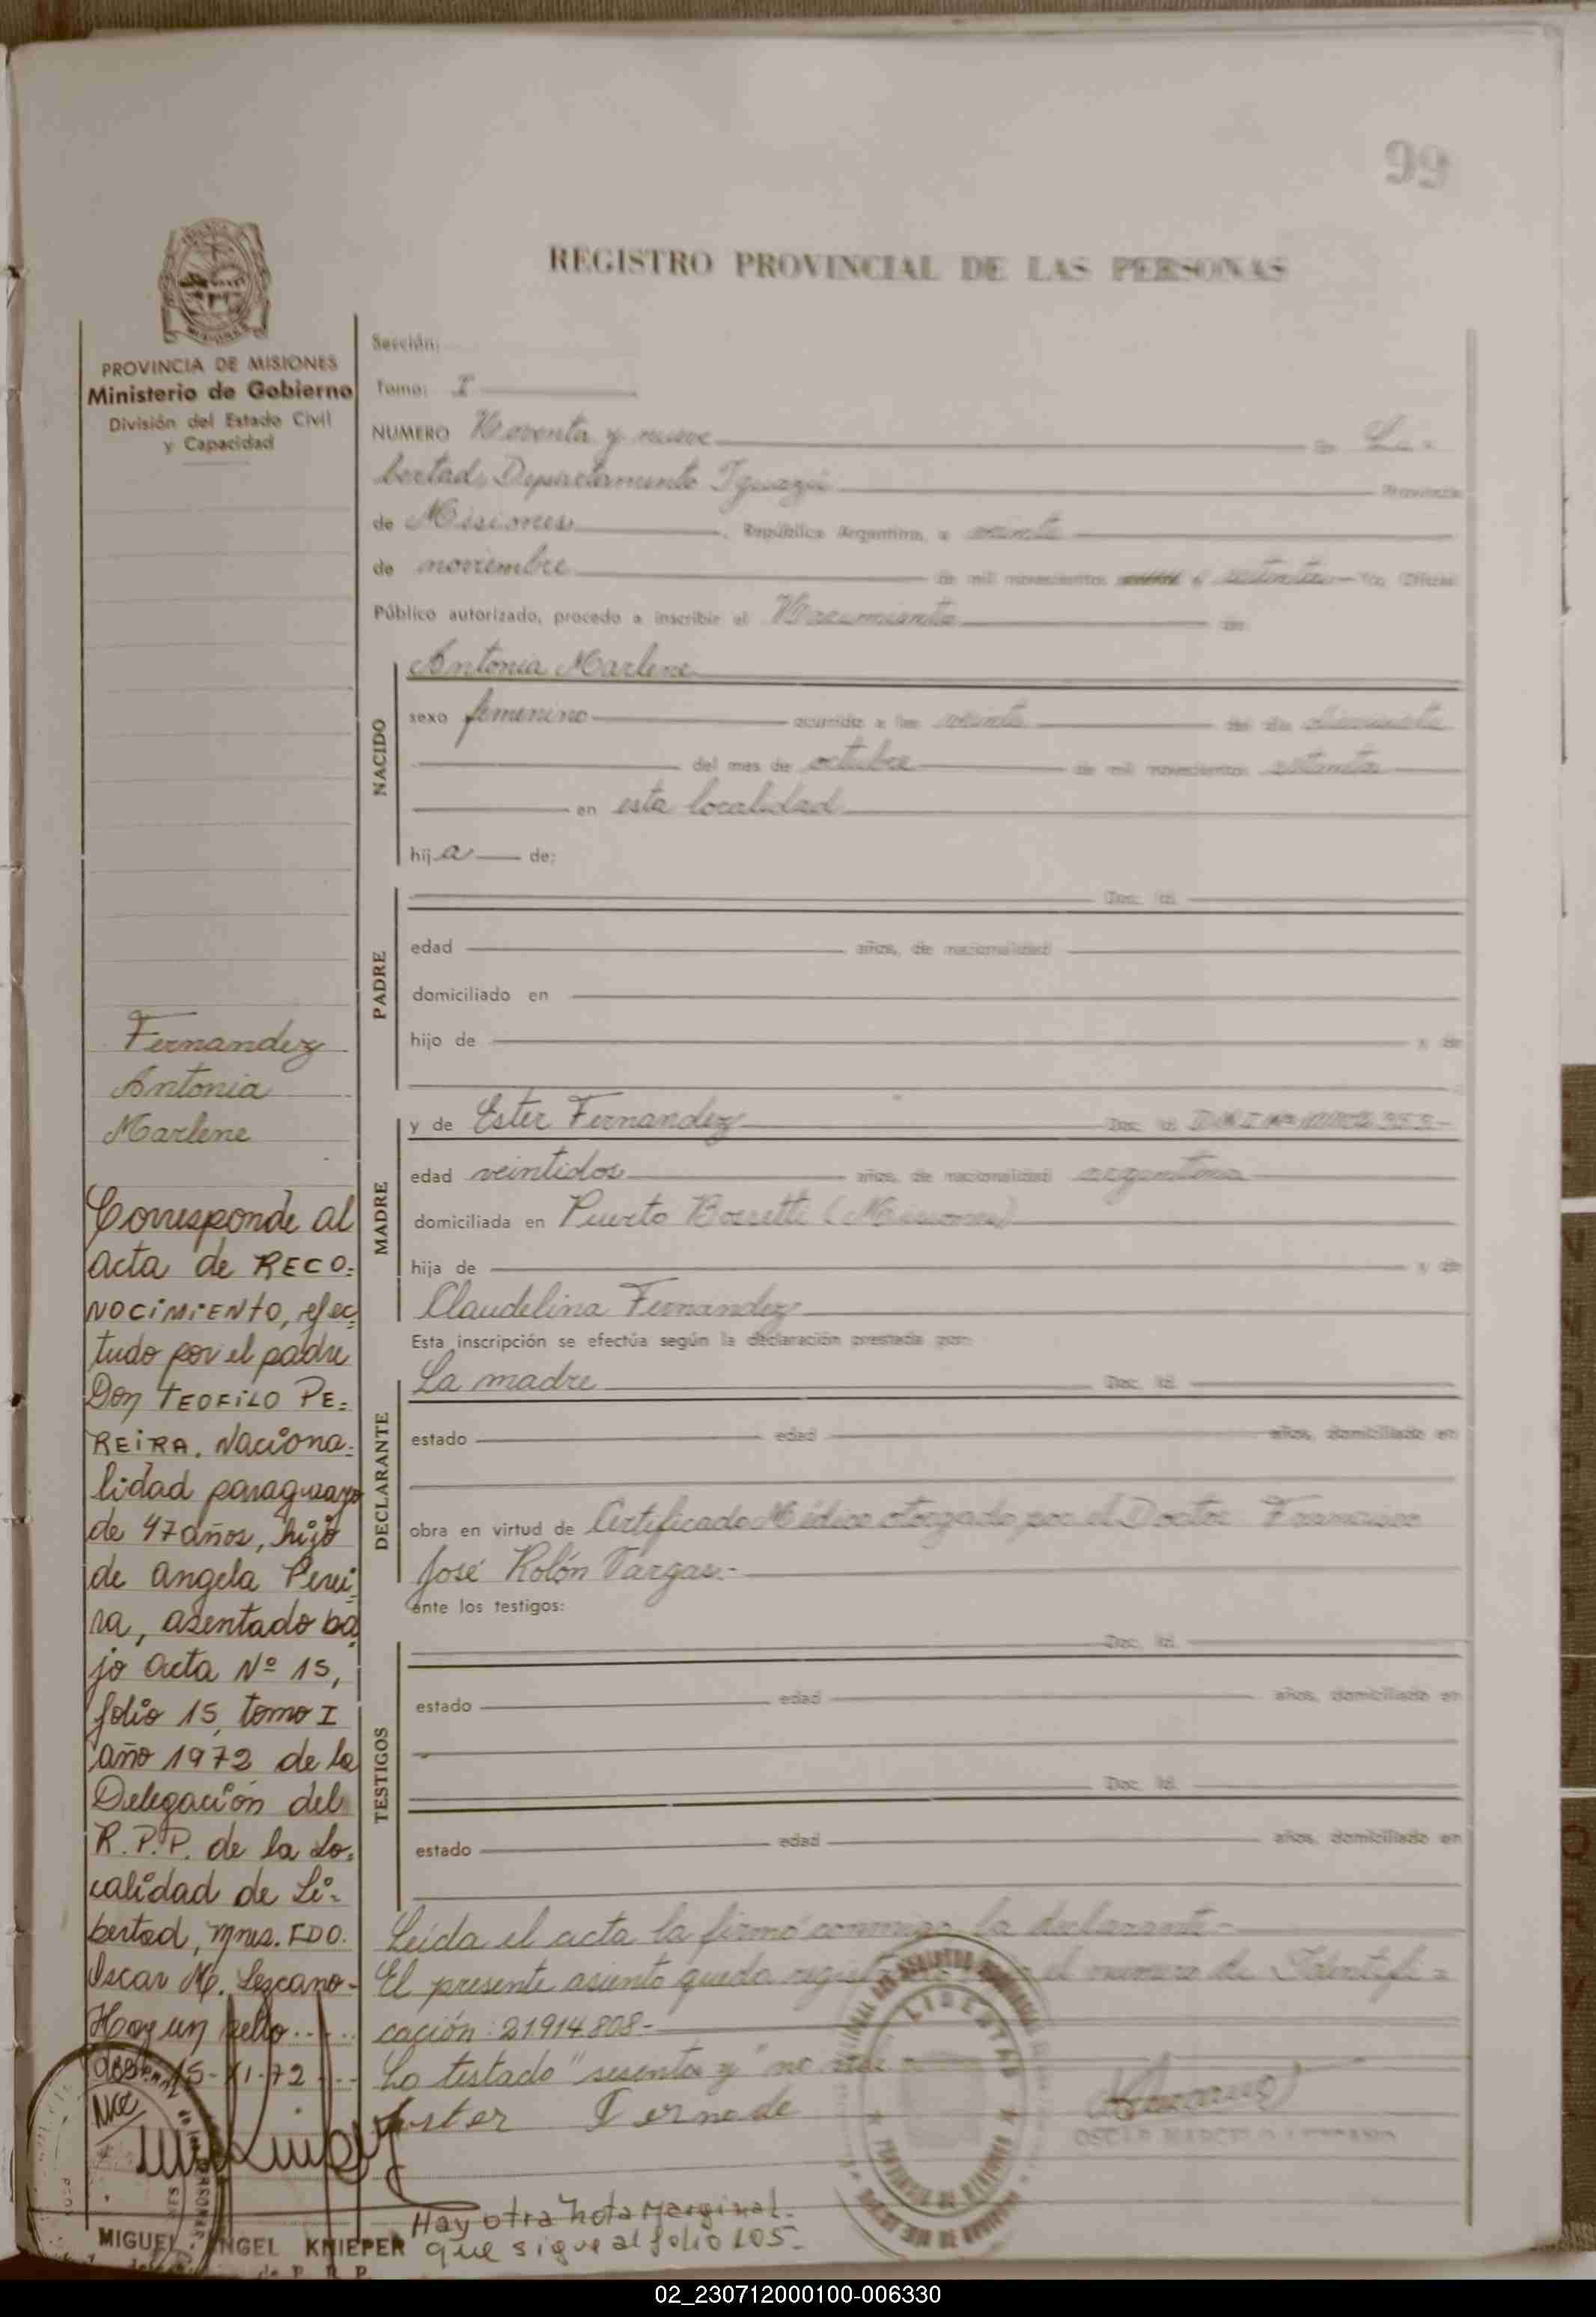 99
REGISTRO PROVINCIAL DE LAS PERSONAS
PROVINCIA DE MISIONES
Ministerio de Gobierno
División del Estado Civil
y Capacidad
Sección:
Tomo: I
NUMERO Noventa y nueve en Li-
bertad, Departamento Iguazú Provincia
de Misiones, República Argentina, a veinte
de noviembre de mil novecientos y setenta Yo, Oficial
Público autorizado, procedo a inscribir el Nacimiento de
NACIDO
Antonia Marlene
sexo femenino ocurrido a las veinte del día diecisiete
del mes de octubre de mil novecientos setenta
en esta localidad
hija de:
PADRE
Doc. Id.
edad años, de nacionalidad
domiciliado en
hijo de y de
MADRE
y de Ester Fernandez Doc. Id.
edad veintidos años, de nacionalidad argentina
domiciliada en Puerto Bossetti (Misiones)
hija de y de
Claudelina Fernandez
Esta inscripción se efectúa según la declaración prestada por:
DECLARANTE
La madre Doc. Id.
estado edad años, domiciliado en
obra en virtud de Certificado Médico otorgado por el Doctor Francisco
José Rolón Vargas.-
ante los testigos:
TESTIGOS
Doc. Id.
estado edad años, domiciliado en
Doc. Id.
estado edad años, domiciliado en
Leída el acta la firmó conmigo la declarante-
El presente asiento queda el numero de Identifi=
cación: 21.914.808-
Lo testado "sesenta y" no
Ester Fernade
OSCAR MARCELO LEZCANO
LIBERTAD
Hay otra nota Marginal.
que sigue al folio 105.-
Fernandez
Antonia
Marlene
Corresponde al
acta de RECO=
NOCIMIENTO, efec
tudo por el padre
Don TEOFILO PE=
REIRA. Naciona=
lidad paraguayo
de 47 años, hijo
de Angela Perei
ra, asentado ba
jo acta Nº 15,
folio 15, tomo I
año 1972 de la
Delegación del
R.P.P. de la Lo=
calidad de Li=
bertad, Mnes. FDO.
Oscar M. Lezcano-
Hay un sello.....
15-XI-72
MIGUEL ANGEL KNIEPER
02_230712000100-006330